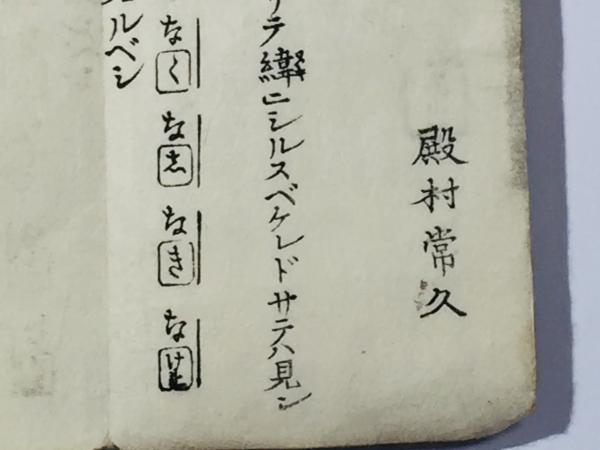 殿村常久
リテ緯ニシルスベケレドサテハ見ン
なく なし なき なけれ
ルベシ